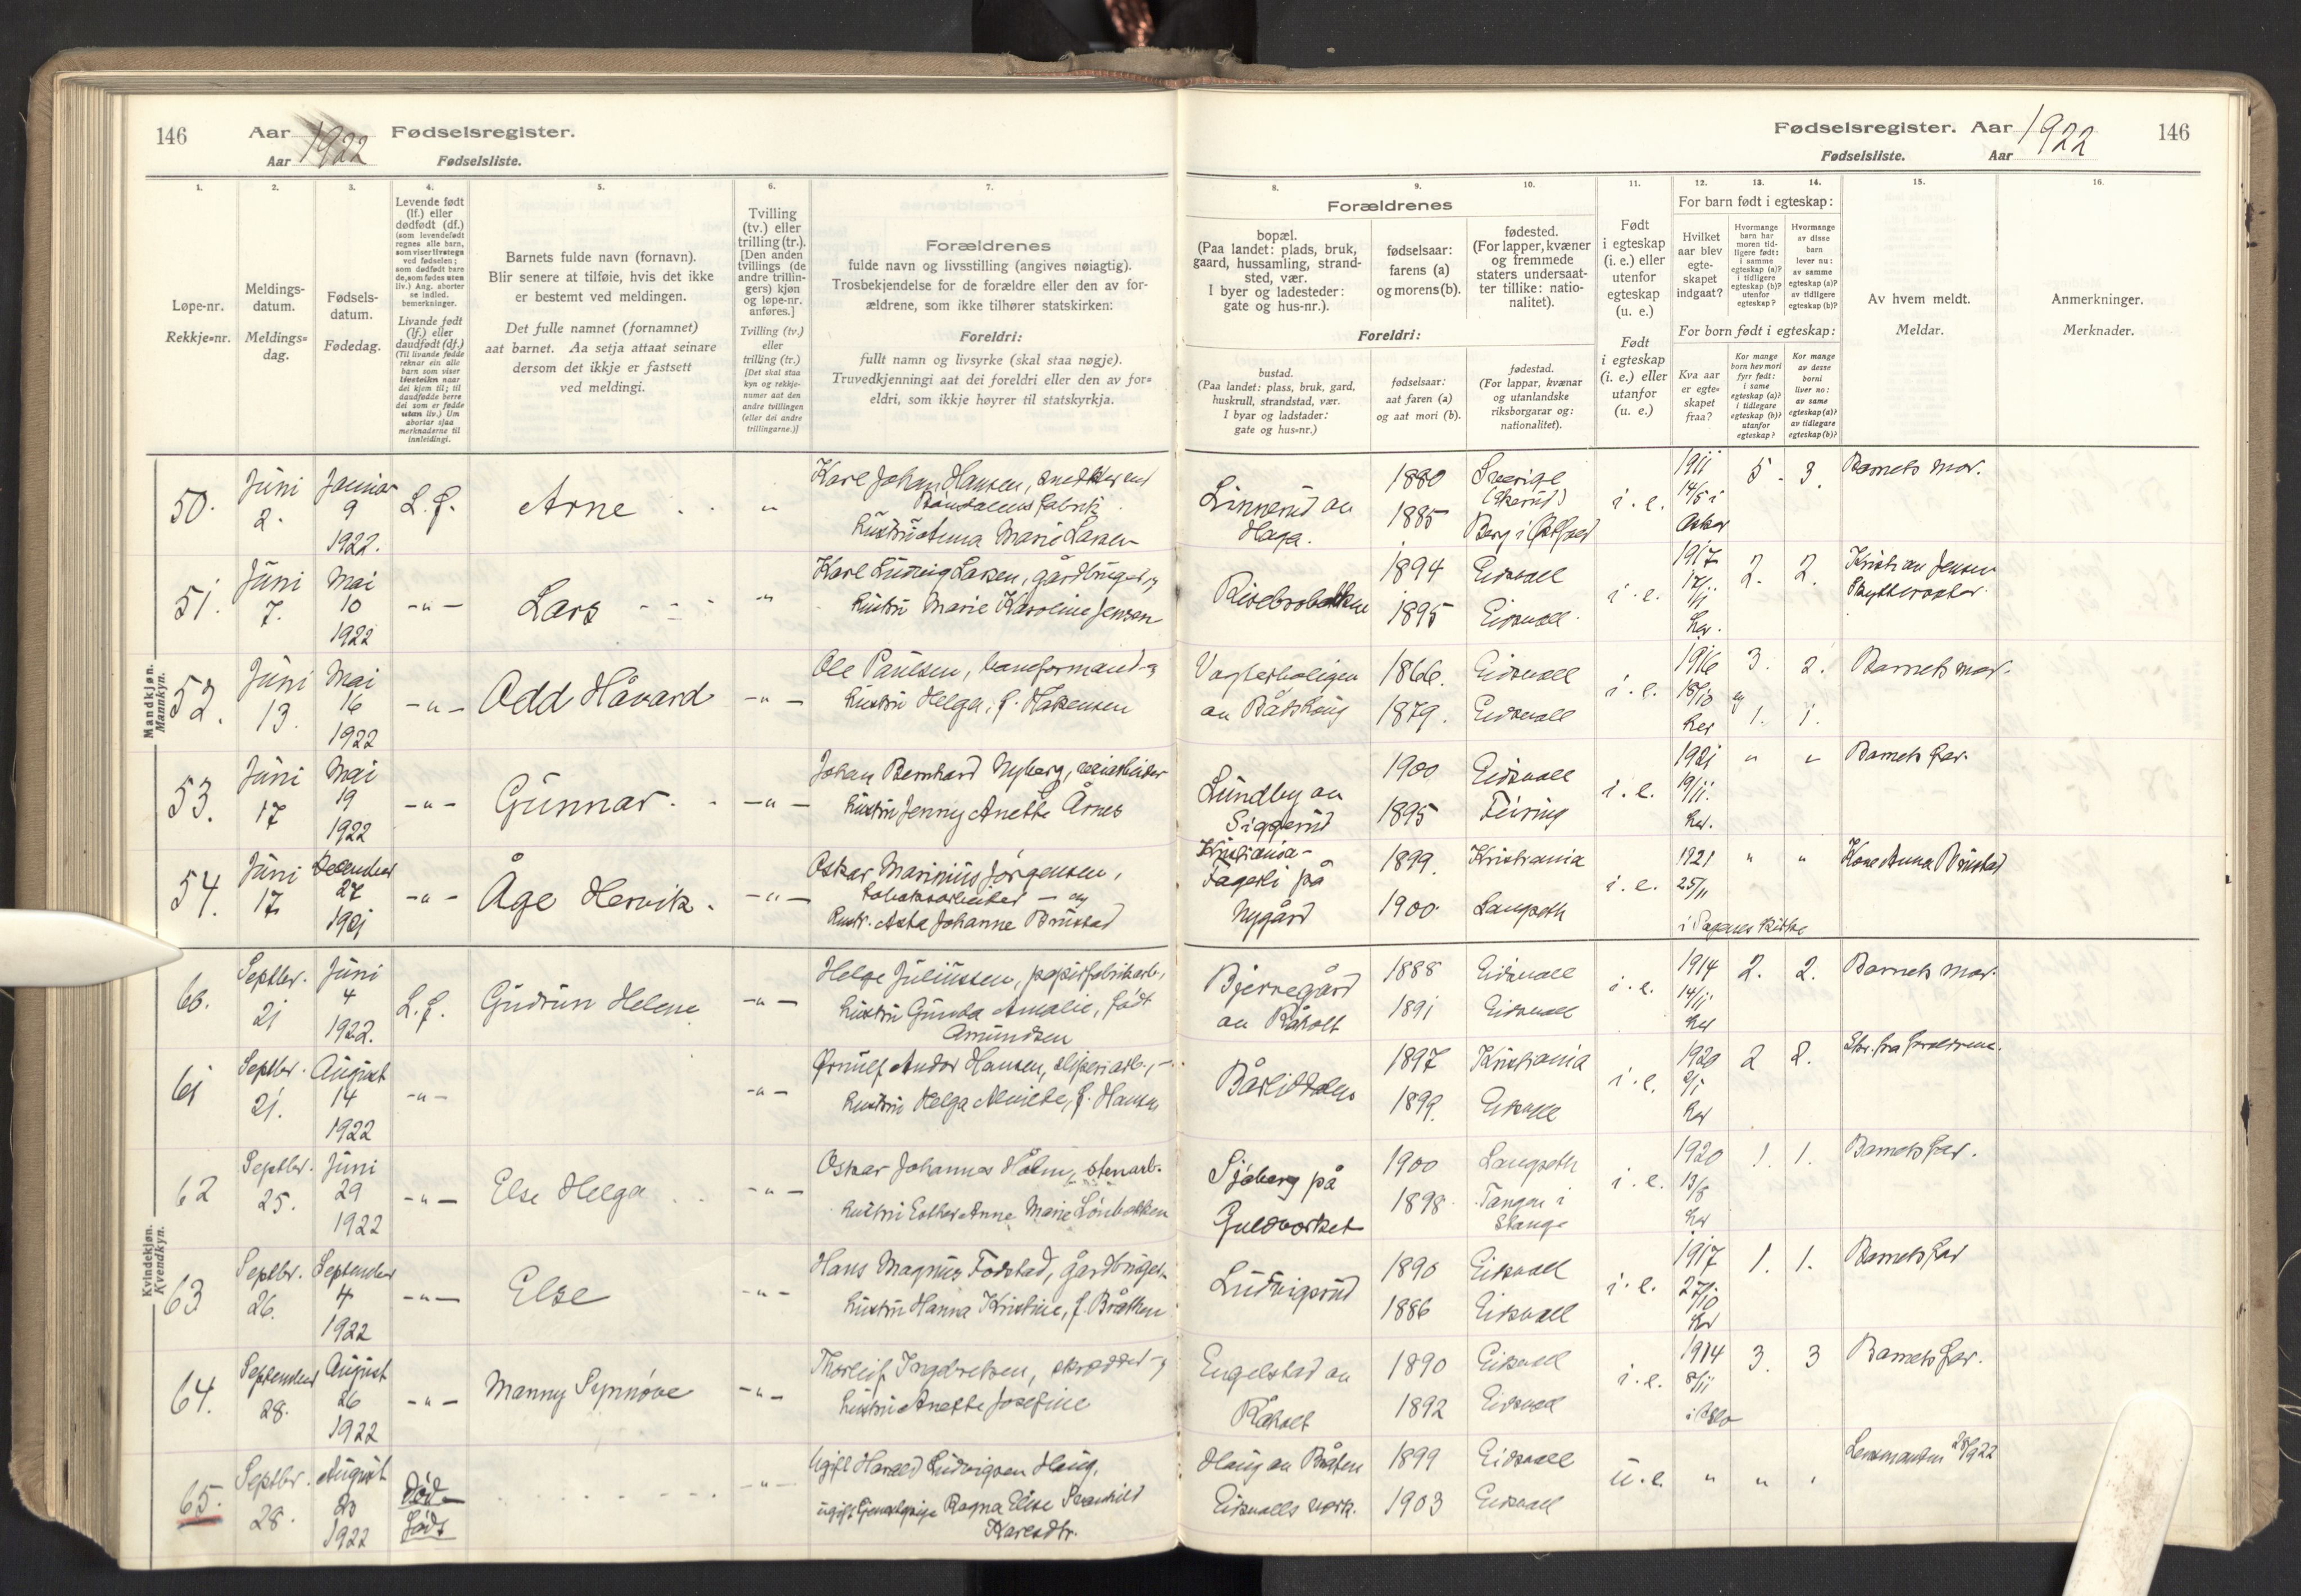 146 Aar 1922 Fødselsregister.
Aar Fødselsliste.
Fødselsregister. Aar 1922 146
Fødselsliste. Aar
1. 2. 3. 4. 5. 6. 7.
8. 9. 10. 11. 12. 13. 14. 15. 16.
Løpe-nr.
Rekkje-nr.
Meldings-
datum.
Meldings-
dag.
Fødsels-
datum.
Fødedag.
Levende født
(lf.) eller
dødfødt (df.)
(som levendefødt
regnes alle barn,
som viser livstegn
ved fødselen;
som dødfødt bare
de, som fødes uten
liv.) Ang. aborter
se indled.
bemerkninger.
Livande født
(lf.) eller
daudfødt (df.)
(Til livande fødde
reknar ein alle
barn som viser
livsteikn naar
dei kjem til; til
daudfødde berre
dei som er fødde
utan liv.) Um
abortar sjaa
merknaderne til
innleidingi.
Barnets fulde navn (fornavn).
Blir senere at tilføie, hvis det ikke
er bestemt ved meldingen.
Det fulle namnet (fornamnet)
aat barnet. Aa setja attaat seinare
dersom det ikkje er fastsett
ved meldingi.
Tvilling
(tv.) eller
trilling (tr.).
[Den anden
tvillings (de
andre trillin-
gers) kjøn
og løpe-nr.
anføres.]
Tvilling (tv.)
eller
trilling (tr.)
[Det skal staa
kyn og rekkje-
numer aat den
andre tvillingen
(eller dei andre
trillingarne.)]
Forældrenes
fulde navn og livsstilling (angives nøiagtig).
Trosbekjendelse for de forældre eller den av for-
ældrene, som ikke tilhører statskirken:
Foreldri:
fullt namn og livsyrke (skal staa nøgje).
Truvedkjenningi aat dei foreldri eller den av for-
eldri, som ikkje høyrer til statskyrkja.
Forældrenes
bopæl.
(Paa landet: plads, bruk,
gaard, hussamling, strand-
sted, vær.
I byer og ladesteder:
gate og hus-nr.).
fødselsaar:
farens (a)
og morens (b).
fødested.
(For lapper, kvæner
og fremmede
staters undersaat-
ter tillike: natio-
nalitet).
Foreldri:
bustad.
(Paa landet: plass, bruk, gard,
huskrull, strandstad, vær.
I byar og ladstader:
gate og hus-nr.)
fødselsaar:
aat faren (a)
og aat mori (b).
fødestad.
(For lappar, kvænar
og utanlandske
riksborgarar og:
nationalitet).
Født
i egteskap
(i. e.) eller
utenfor
egteskap
(u. e.)
Født
i egteskap
(i. e.) eller
utanfor
(u. e.)
For barn født i egteskap:
Hvilket
aar blev
egte-
skapet
indgaat?
Hvormange
barn har
moren tid-
ligere født:
i samme
egteskap (a)?
i tidligere
egteskap (b)?
utenfor
egteskap?
Hvormange
av disse
barn
lever nu:
av samme
egteskap (a)?
av tidligere
egteskap (b)?
For born født i egteskap:
Kva aar
er egte-
skapet
fraa?
Kor mange
born hev mori
fyrr født:
i same
egteskap (a)?
i tidlegare
egteskap (b)?
utanfor
egteskap?
Kor mange
av desse
borni
liver no:
av same
egteskap (a)?
av tidlegare
egteskap (b)?
Av hvem meldt.
Meldar.
Anmerkninger.
Merknader.
Mandkjøn.
Mannkyn.
50. Juni 2. Januar 9 1922. L.f. Arne
Karl Johan Hansen, snedker ved
fabrik
Hustru Anna Marie Larsen
Haga. 1880 1885 Sverige
Berg i Østfold i. e. 1911 14/5 i Asker 5 - 3. Barnets mor.
51. Juni 7. Mai 10 1922 -"- Lars
Karl Ludvig Larsen, gårdbruger, og
hustru Marie Karoline Jensen
Risebrobakken 1894 1895 Eidsvoll Eidsvoll i. e. 1917 her. 2. 2. Kristian Jensen
52. Juni 13. Mai 16 1922 -"- Odd Håvard -"-
Ole Paulsen, baneformand og
hustru Helga, f. Håkensen
Vogterboligen
av Bårlihaug 1866. 1879. Eidsvoll Eidsvoll i. e. 1916 her 3. og 1. 2. 1. Barnets mor.
53. Juni 17 Mai 19 1922 -"- Gunnar -"-
Johan Bernhard Nyberg, veiarbeider
hustru Jenny Anette Årnes
Lundby av
Siggerud 1900 1895 Eidsvoll Feiring i. e. 1921 19/11. her. " " Barnets far.
54. Juni 17. December 27 1921 -"- Åge Henrik -"-
Oskar Marinius Jørgensen,
tobaksarbeider - og
hustr. Asta Johanne Brustad
Kristiania -
Fagerli på
Nygård 1899. 1900 Kristiania Langseth i. e. 1921 25/11 i Sagenes kirke " " Kone Anna Brustad
Kvindekjøn.
Kvendkyn.
60. Septbr. 21 Juni 4 1922. L.f. Gudrun Helene -"-
Helge Juliussen, papirfabrikarb.,
hustru Gunda Amalie, født
Amundsen
Bjernegård
av Råholt 1888 1891 Eidsvoll Eidsvoll i. e. 1914 14/11 her 2. 2. Barnets mor.
61 Septbr. 21. August 14 1922 -"- -"-
Ørnulf Andor Hansen, sliperiarb.,
hustru Helga f. Hansen
Bårlidalen 1897 1899. Kristiania Eidsvoll i. e. 1920 her 2 2. Skr. fra forældrene.
62 Septbr. 25. Juni 29 1922 -"- Else Helga -"-
Oskar Johannes Holm, stenarb.
hustru Esther Anne Marie Lønbakken
Sjøberg på
Guldverket 1900 1898 Langseth Tangen i
Stange i. e. 1920 13/8 her 1. 1. Barnets far.
63 Septbr. 26. September 4 1922 -"- Else -"-
Hans Magnus Fodstad, gårdbruger
hustru Hanna Kristine, f. Bråthen
Ludvigsrud 1890 1886 Eidsvoll Eidsvoll i. e. 1917 27/10 her 1. 1. Barnets far
64. September 28. August 26 1922 -"- Manny Synnøve -"-
Thorleif Ingdretsen, skrædder og
hustru Anette Josefine
Engelstad av
Råholt 1890 1892 Eidsvoll Eidsvoll i. e. 1914 8/11 i Oslo 3. 3 Barnets far.
65. Septbr. 28. August 23 1922 Død-
født -"-
Ugift Harald Ludvigsen Haug,
ugift Ragna Elise Svanhild
Karesdtr.
Haug av Bråten
Eidsvolls verk. 1899 1903 Eidsvoll Eidsvoll u. e. " " " Lensmanden 28/9 22